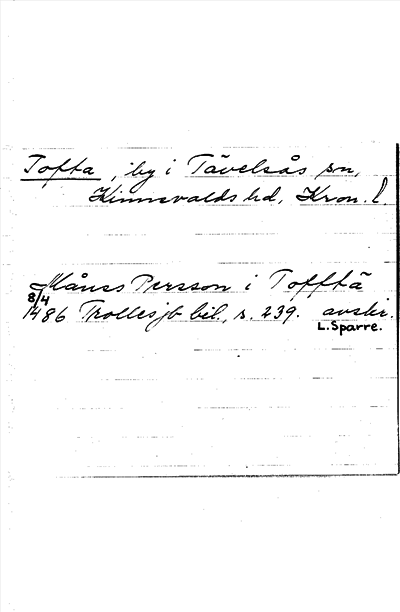 Tofta, by i Tävelsås sn,
Kinnevalds hd, Kron. l.
Månss Persson i Tofftä
8/4
1486 Trollesjb bil., s. 239. avskr.
L. Sparre.